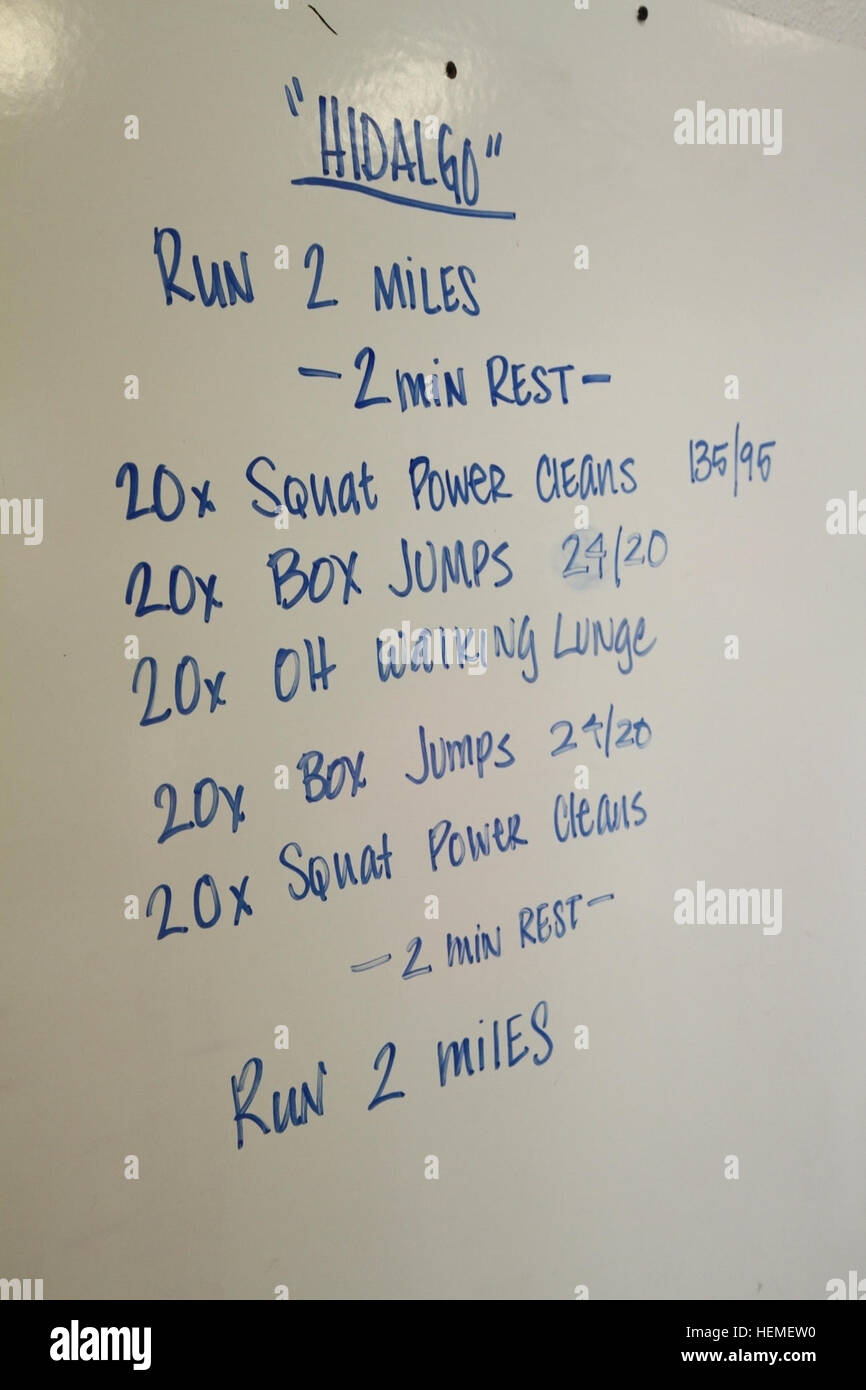 "HIDALGO"
RUN 2 MILES
-2 MIN REST-
20x Squat Power Cleans 135/95
20x BOX JUMPS 24/20
20x OH WALKING LUNGE
20x BOX Jumps 24/20
20x Squat Power Cleans
-2 MIN REST-
RUN 2 MILES
alamy
Image ID: HEMEW0
www.alamy.com